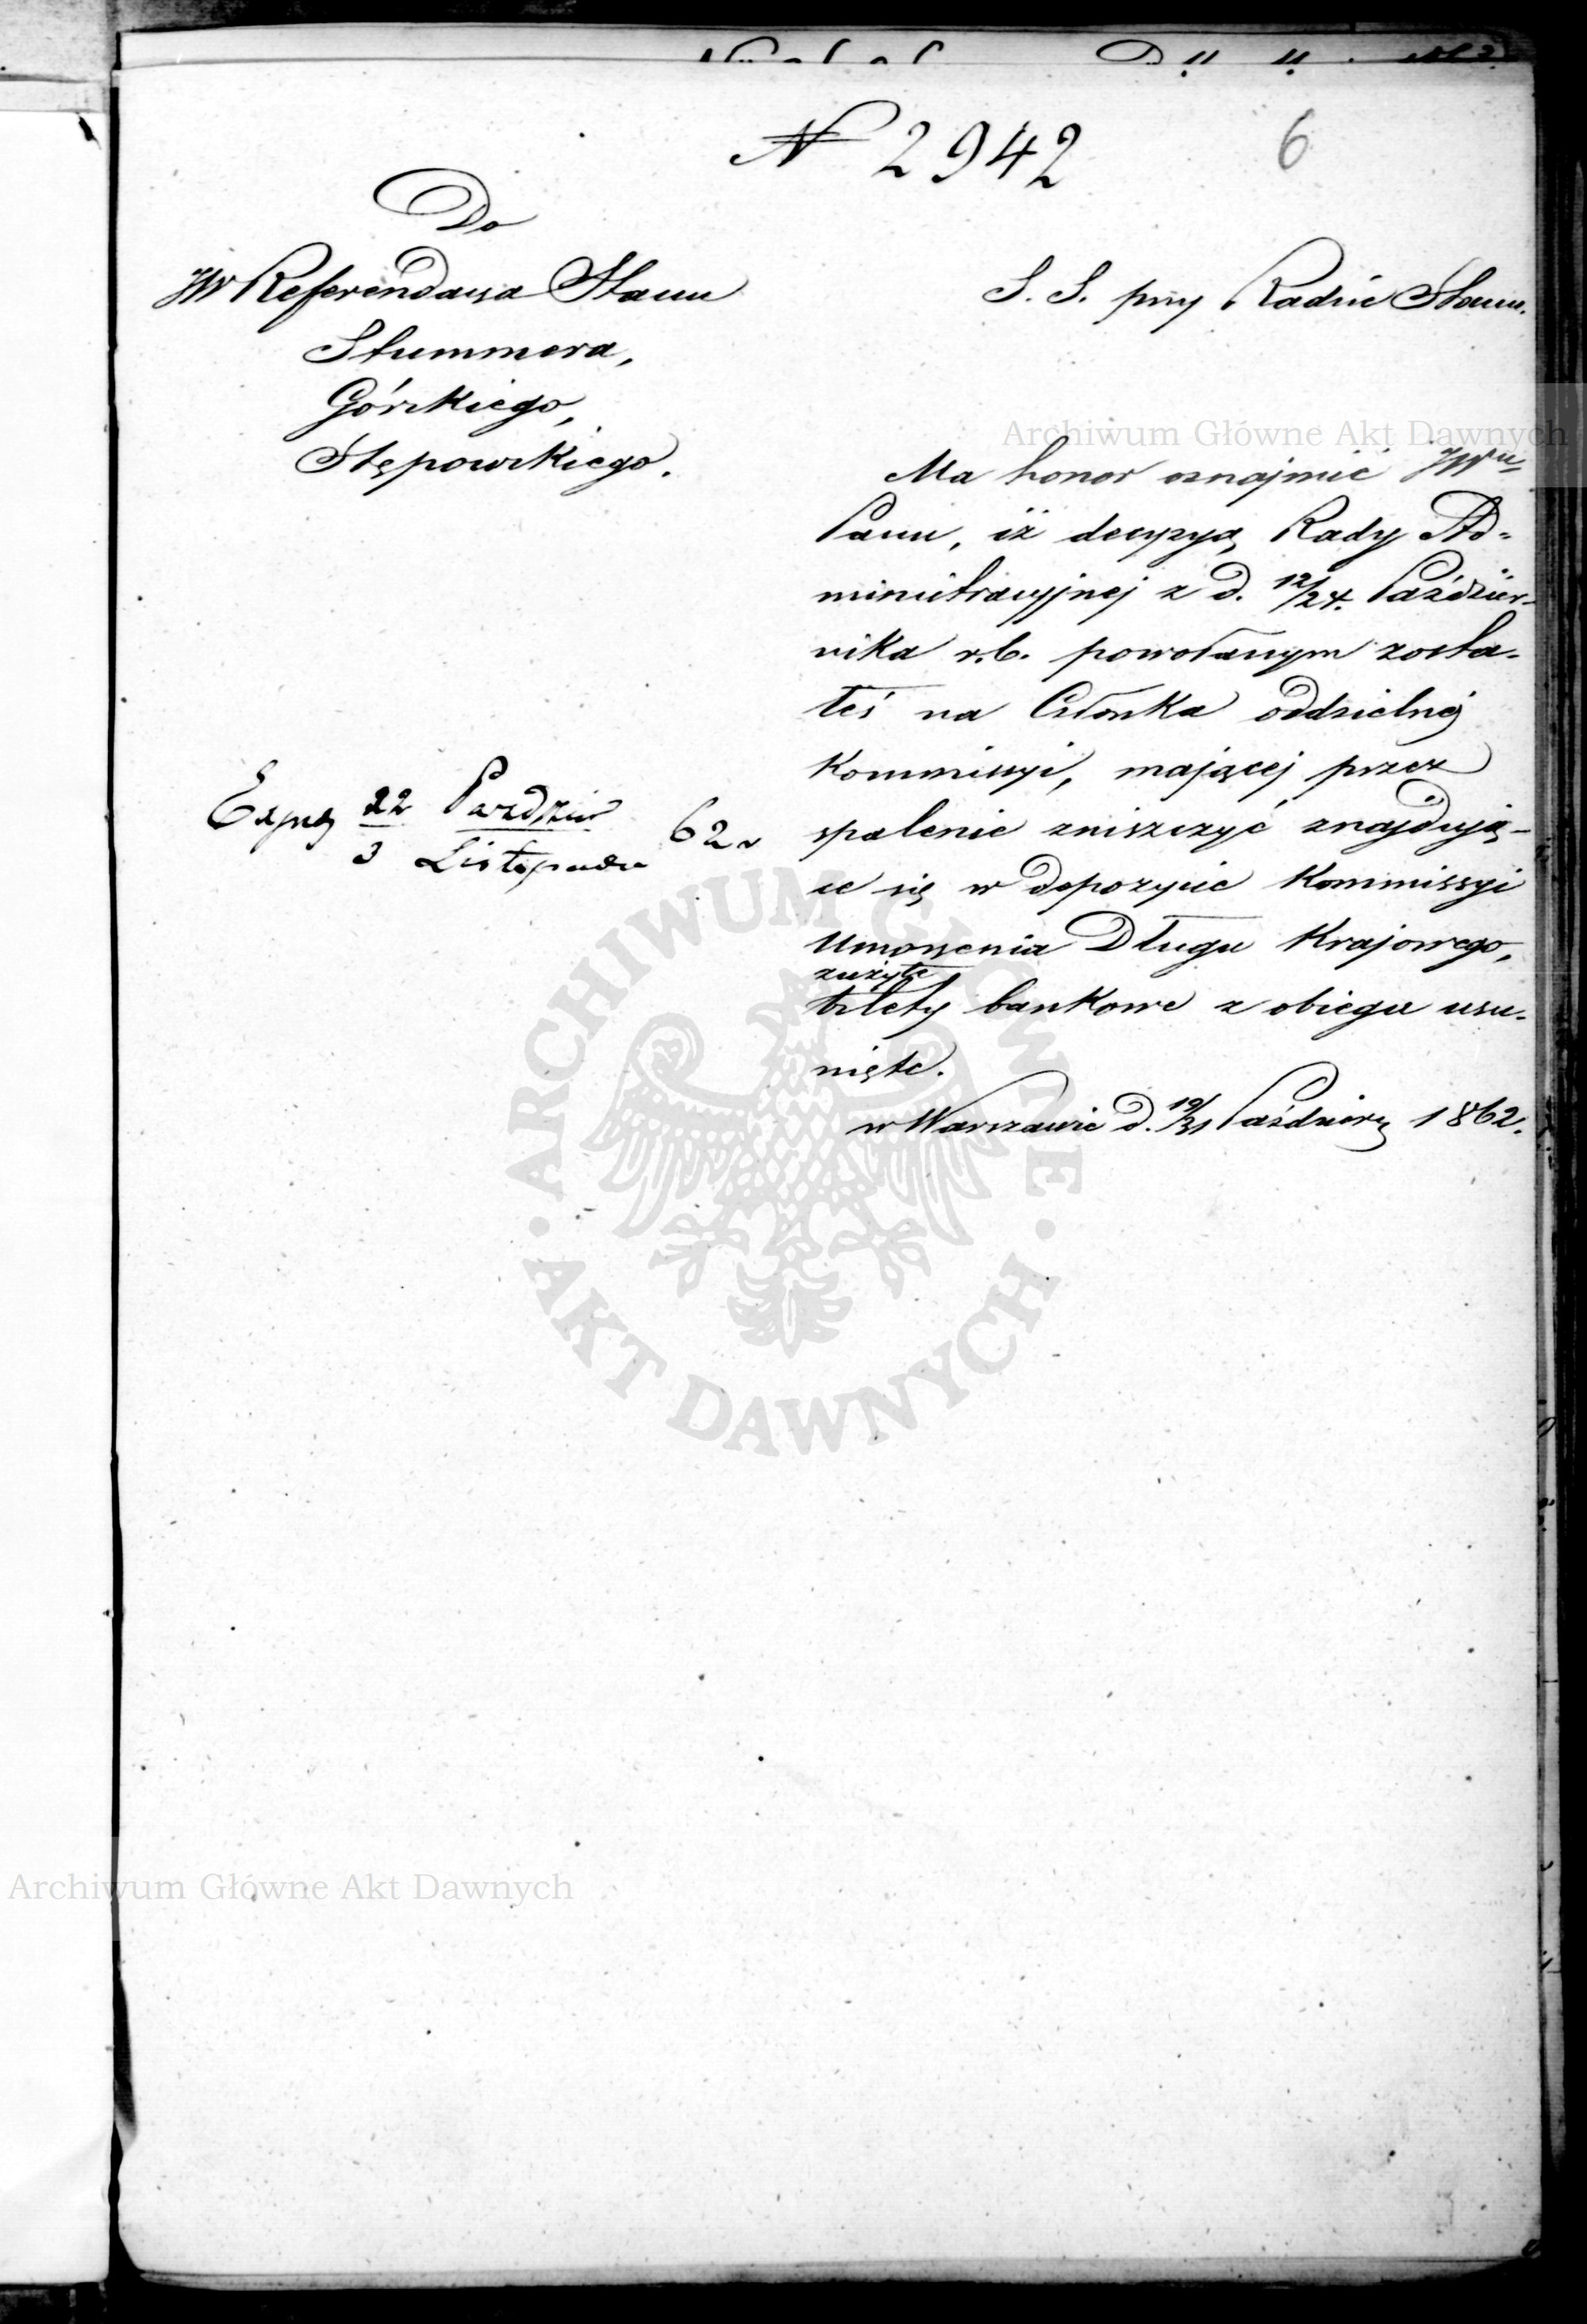 N 2942
6
Do
JW Referendarza Stanu
Stummera,
Górskiego,
Stępowskiego.
S. S. przy Radzie Stanu.
Ma honor oznajmić JWu
Panu, iż decyzyą Rady Ad=
ministracyjnej z d. 12/24. Paździer-
nika r.b. powołanym zosta-
łeś na Członka oddzielnéj
Kommissyi, mającej przez
spalenie zniszczyć znajdują-
ce się w depozycie Kommissyi
Umorzenia Długu Krajowego,
zużyte
bilety bankowe z obiegu usu-
nięte.
w Warszawie d. 19/31 Paździer 1862.
22 Pazdzier
3 Listopada 62 r
Archiwum Główne Akt Dawnych
ARCHIWUM GŁÓWNE · AKT DAWNYCH ·
Archiwum Główne Akt Dawnych